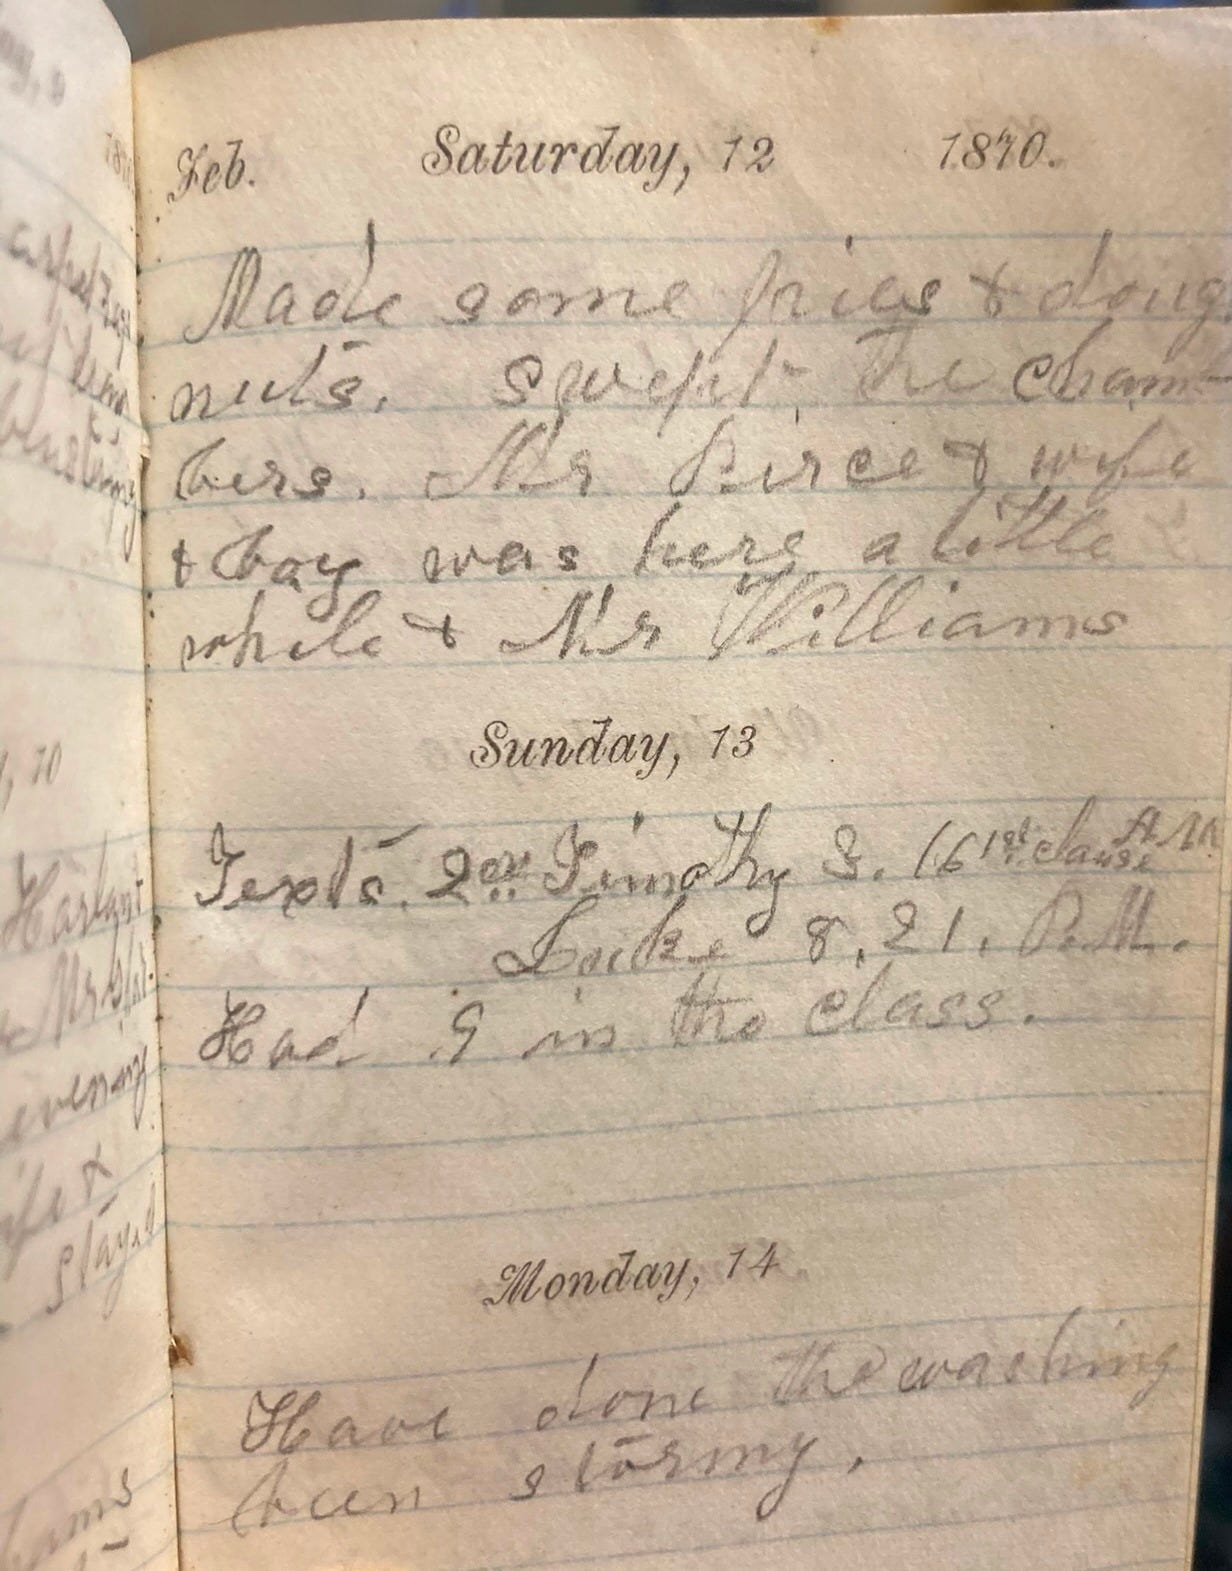 Feb. Saturday, 12 1870.
Made some pies & doug
nuts. Swept the cham-
bers. Mr Pirce & wife
& boy was here a little
while & Mr Williams
Sunday, 13
Texts. 2on Timothy 3. 16 1st clause A M
Luke 8. 21. P.M.
Had 9 in the class.
Monday, 14
Have done the washing
been stormy.
, 10
Harlant
evening
& 
stayed